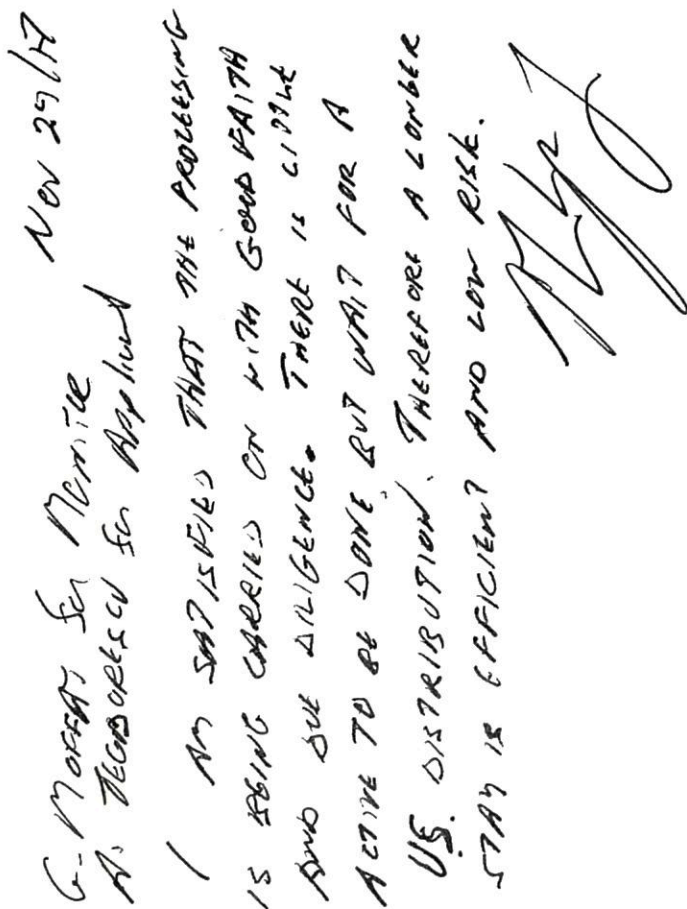 G. Moffat for Monitor Nov 29/17
A. Teodorescu for Applicant
I AM SATISFIED THAT THE PROCEEDING
IS BEING CARRIED ON WITH GOOD FAITH
AND DUE DILIGENCE. THERE IS LITTLE
ACTIVE TO BE DONE BUT WAIT FOR A
U.S. DISTRIBUTION. THEREFORE A LONGER
STAY IS EFFICIENT AND LOW RISK.